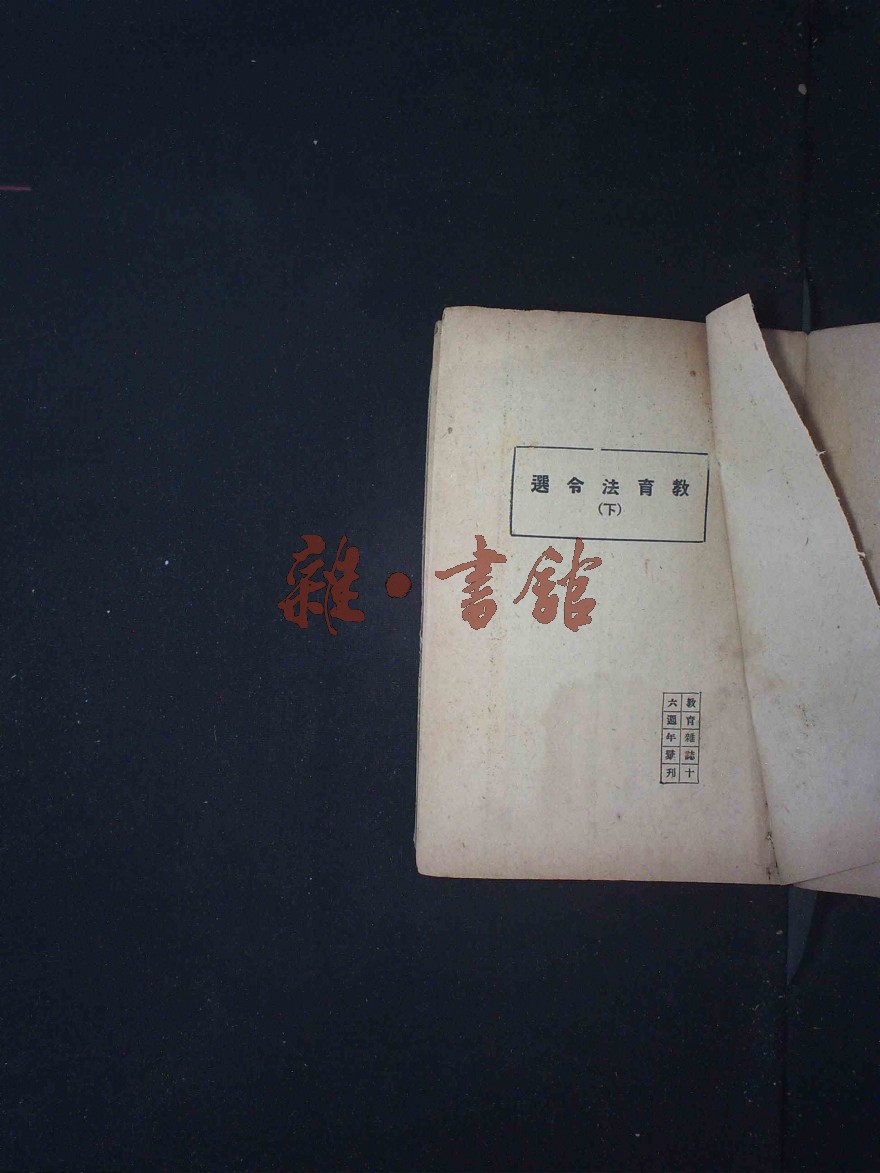 教育法令選
(下)
雜·書舘
教育雜誌十
六週年彙刊